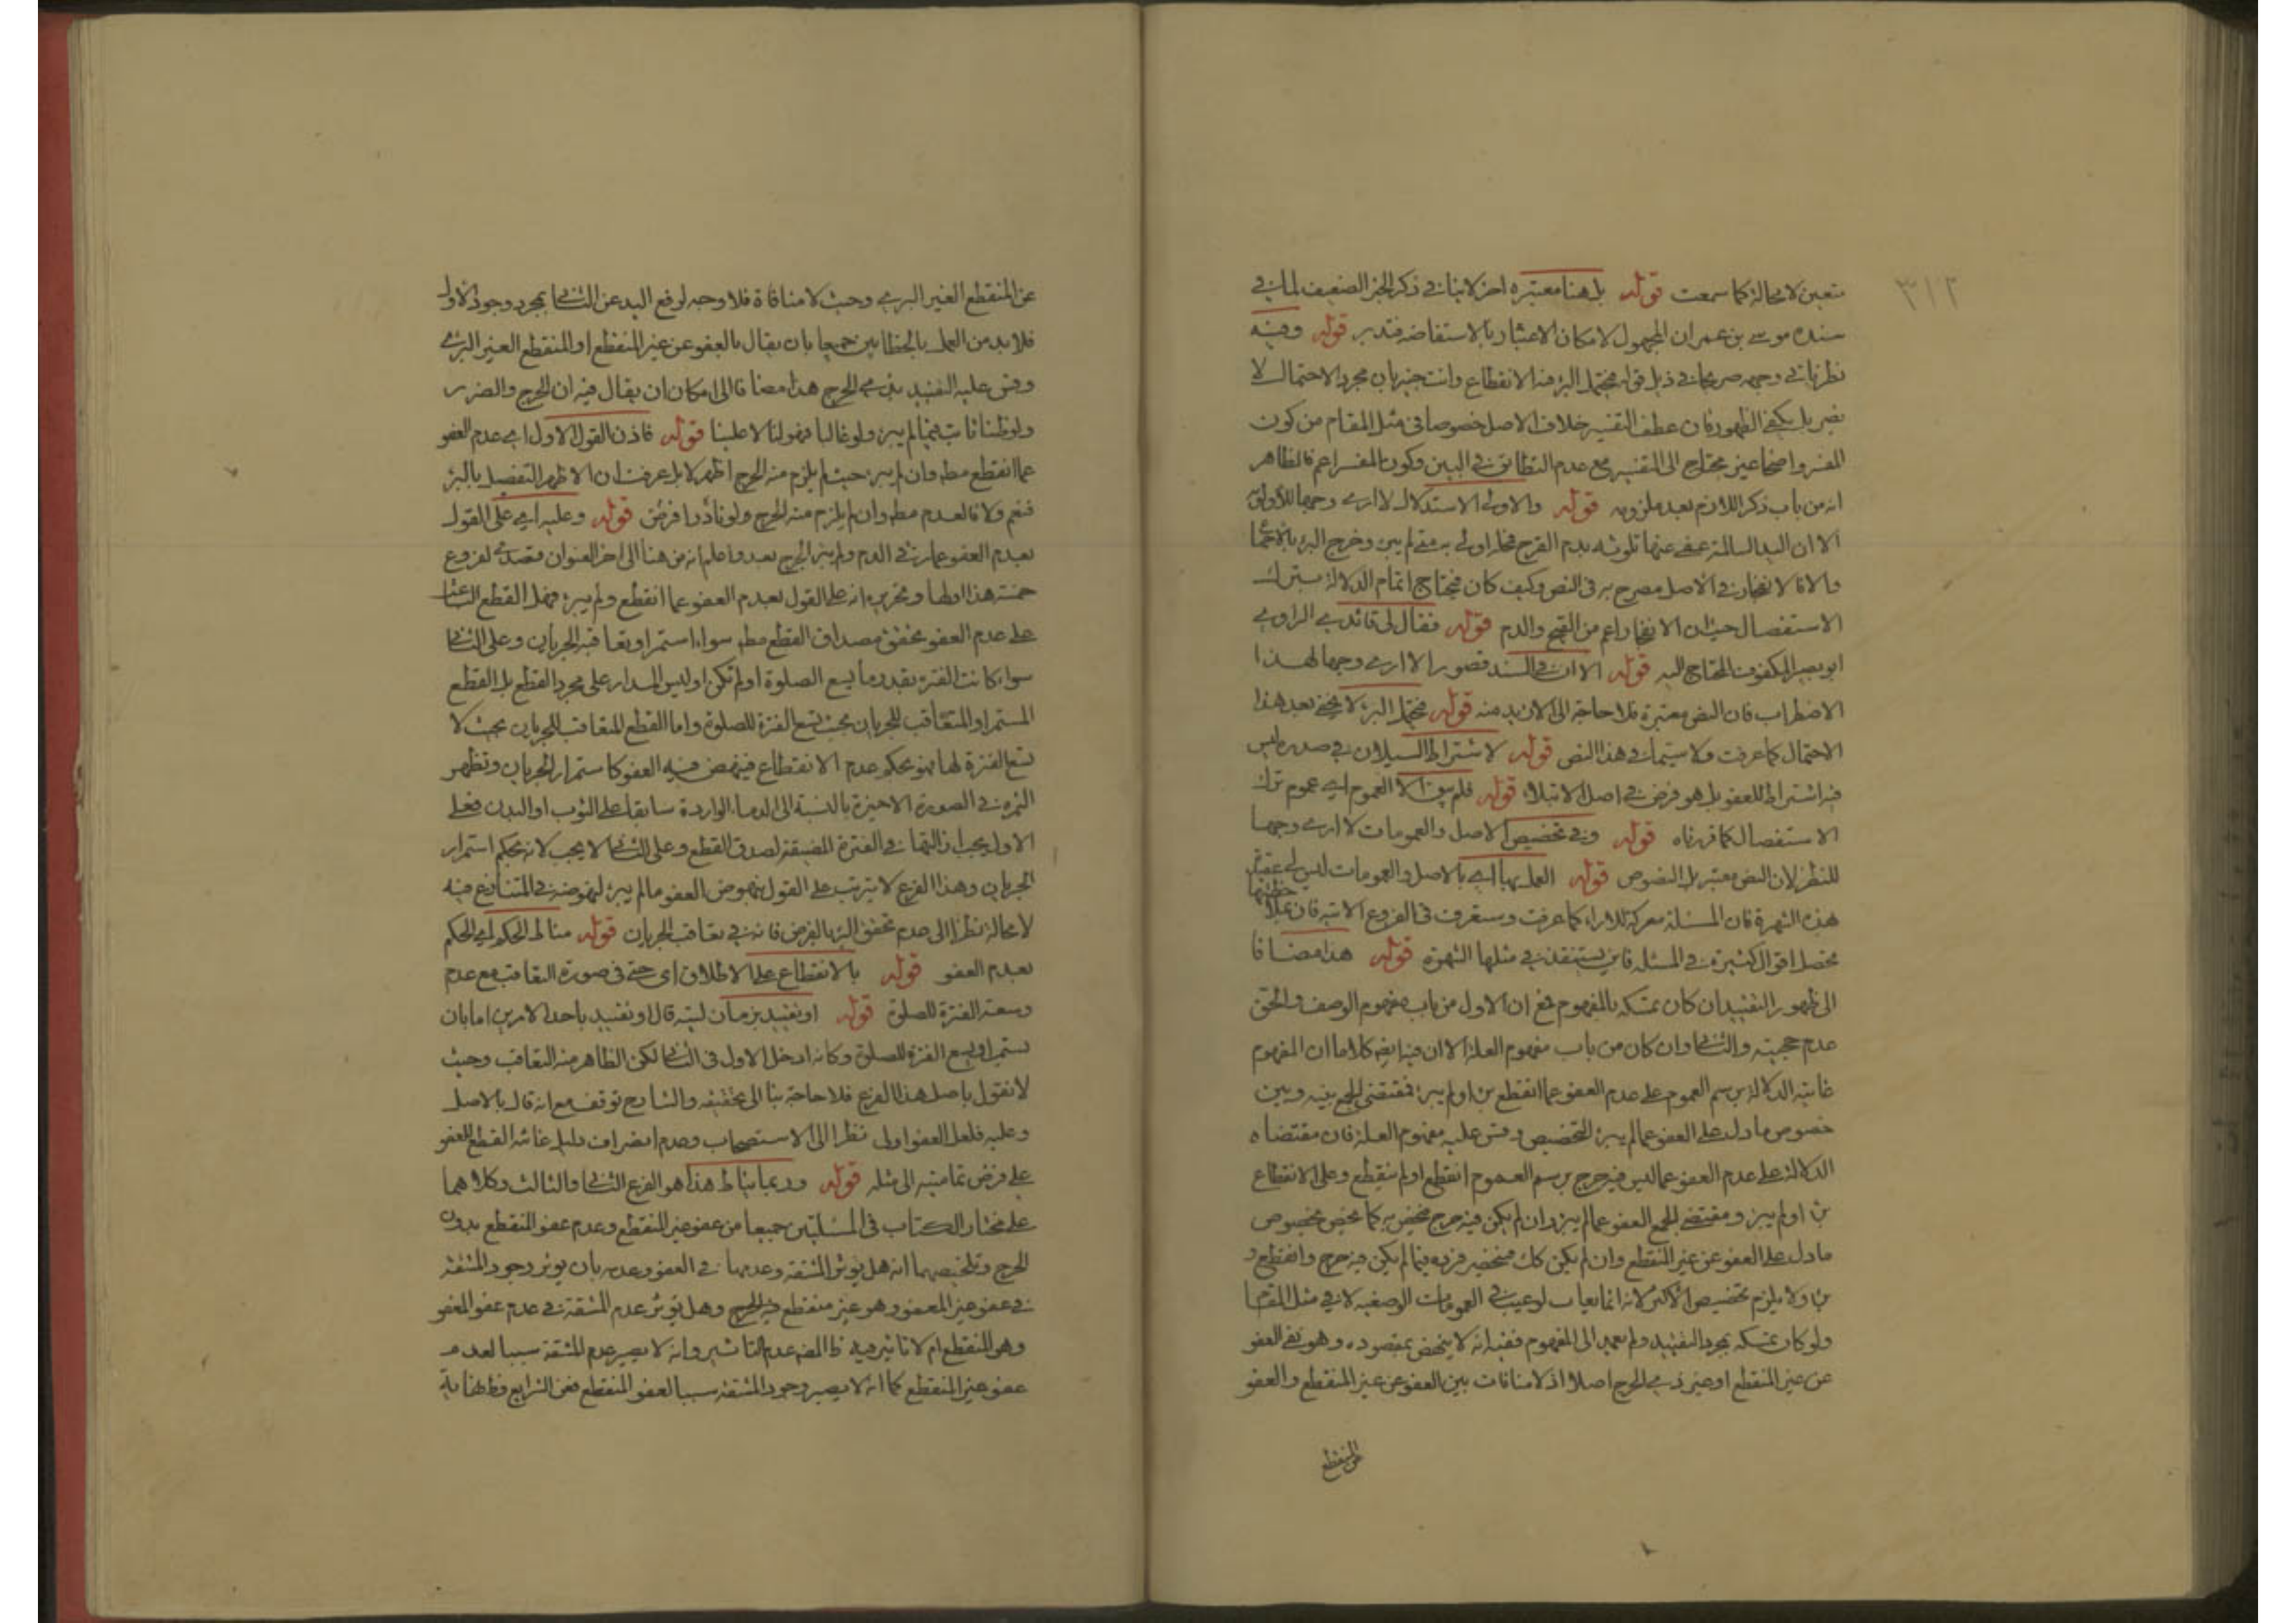 ٣١٢
متعين لا محالة كما سمعت قوله بل هنا معتبرة اخر لا بنا في ذكر الخبر الضعيف لما في
سنده موسى بن عمران المجهول لامكان الاعتبار بالاستفاضه فتدبر قوله وفيه
نظر ياتي وجهه صريحا في ذيل قوله محتمل البرء منه الانقطاع وانت خبير بان مجرد الاحتمال لا
يضر بل يكفي الظهور فان عطف التفسير خلاف الاصل خصوصا في مثل المقام من كون
المفسر واضحا غير محتاج الى التفسير مع عدم التطابق في البين وكون المفسر اعم فالظاهر
انه من باب ذكر اللازم بعد ملزومه قوله والاولى الاستدلال لا ارى وجها للاولوية
الا ان اليد السالمة عفي عنها تلوثه بدم القرح فمحله اولى به متى لم يبرء وخرج البرء بالاجماع
والا فالانفجار في الاصل مصرح به في النص وكيف كان فيحتاج اتمام الدلالة بترك
الاستفصال حيث ان الانفجار اعم من القيح والدم قوله فقال لي قائدي الراوي
ابو بصير المكفوف المحتاج اليه قوله الا ان في السند قصور الا ارى وجها لهذا
الاضطراب فان النص معتبرة فلا حاجة الى الازيد منه قوله محتمل البرء لا يخفى بعد هذا
الاحتمال كما عرفت ولا سيما في هذا النص قوله لاشتراط السيلان في صدره ليس
فيه اشتراط للعفو بل هو فرض في اصل الابتلاء قوله فلم يبق الا العموم اي عموم ترك
الاستفصال كما قررناه قوله وفي تخصيص الاصل والعمومات لا ارى وجها
للنظر لان النص معتبر بل النصوص قوله العمل بها اي بالاصل والعمومات ليس لي
هذه الشهرة فان المسئلة معركة للاراء كما عرفت وستعرف في الفروع الاتية فان
محصل اقوال كثيرة في المسئلة فاين يستنقذ في مثلها الشهرة قوله هذا مضافا
الى ظهور التقييد ان كان تمسكه بالمفهوم فمع ان الاول من باب مفهوم الوصف والحق
عدم حجيته والثاني وان كان من باب مفهوم العلة الا ان فيه ايضا كلاما ان المفهوم
غايته الدلالة برسم العموم على عدم العفو عما انقطع برء او لم يبرء فمقتضى الجمع بينه وبين
خصوص ما دل على العفو عما لم يبرء التخصيص وقس عليه مفهوم العلة فان مقتضاه
الدلالة على عدم العفو عما ليس فيه حرج برسم العموم انقطع او لم ينقطع وعلى الانقطاع
برء او لم يبرء ومقتضى الجمع العفو عما لم يبرء وان لم يكن فيه حرج فيخص به كما يخص بخصوص
ما دل على العفو عن غير المنقطع وان لم يكن كك فينحصر فرده فيما لم يكن فيه حرج وانقطع و
برء ولا يلزم تخصيص الاكثر لانه انما يعاب لو عيب في العمومات الوضعية لا في مثل المقام
ولو كان تمسكه بمجرد التقييد ولم يعمد الى المفهوم ففيه انه لا ينهض بمقصوده وهو نفي العفو
عن غير المنقطع او غير ذي الحرج اصلا اذ لا منافات بين العفو عن غير المنقطع والعفو
عن المنقطع
عن المنقطع الغير البرء وحيث لا منافاة فلا وجه لرفع اليد عن الثاني بمجرد وجود الاول
فلا بد من العمل بالخطابين جميعا بان يقال بالعفو عن غير المنقطع او المنقطع الغير البرء
وقس عليه التقييد بذي الحرج هذا مضافا الى امكان ان يقال فيه ان الحرج والضرر
ولو ظنا ثابت فيما لم يبرء ولو غالبا فهو لنا لا علينا قوله فاذن القول الاول اي عدم العفو
عما انقطع مط وان لم يبرء حيث لم يلزم منه الحرج اظهر لا بل عرفت ان الاظهر التفصيل بالبرء
فنعم ولا فالعدم مط وان لم يلزم منه الحرج ولو نادرا فرض قوله وعليه اي على القول
بعدم العفو عما رئي الدم ولم يبرء الجرح بعد واعلم انه من هنا الى اخر العنوان مقصدى لفروع
خمسة هذا اولها وتحريره انه على القول بعدم العفو عما انقطع ولم يبرء فهل القطع الباعث
على عدم العفو تحقق مصداق القطع مط سواء استمر او تعاقبه الجريان وعلى الثاني
سواء كانت الفترة بقدر ما يسع الصلوة او لم تكن او ليس المدار على مجرد القطع بل القطع
المستمر او المتعاقب للجريان بحيث تسع الفترة للصلوة واما القطع المتعاقب للجريان بحيث لا
تسع الفترة لها فهو بحكم عدم الانقطاع فينهض فيه العفو كاستمرار الجريان وتظهر
الثمرة في الصورة الاخيرة بالنسبة الى الدماء الواردة سابقا على الثوب او البدن فعلى
الاول يجب ازالتها في الفترة المضيقة لصدق القطع وعلى الثاني لا يجب لانه بحكم استمرار
الجريان وهذا الفرع لا يترتب على القول بنهوض العفو ما لم يبرء لنهوضه في المتنازع فيه
لا محالة نظرا الى عدم تحقق البرء بالفرض فانه في تعاقب الجريان قوله مناط الحكم اي الحكم
بعدم العفو قوله بالانقطاع على الاطلاق اى حتى في صورة التعاقب مع عدم
وسعة الفترة للصلوة قوله او تقييد بزمان ليته قال او تقييد باحد الامرين اما بان
يستمر او يسع الفترة للصلوة وكانه ادخل الاول في الثاني لكن الظاهر منه التعاقب وحيث
لا نقول باصل هذا الفرع فلا حاجة بنا الى تحقيقه والشارح توقف مع انه قال بالاصل
وعليه فلعل العفو اولى نظرا الى الاستصحاب وعدم انصراف دليل غائية القطع للعفو
على فرض تماميته الى مثله قوله وربما يناط هذا هو الفرع الثاني والثالث وكلاهما
على مختار الكتاب في المسئلتين جميعا من عفو غير المنقطع وعدم عفو المنقطع بدون
الحرج وتلخيصهما انه هل يؤثر المشقة وعدمها في العفو وعدمه بان يؤثر وجود المشقة
في عفو غير المعفو وهو غير منقطع فيه الحرج وهل يؤثر عدم المشقة في عدم عفو المعفو
وهو المنقطع ام لا تاثير فيه ظ المص عدم التاثير وانه لا يصير عدم المشقة سببا لعدم
عفو غير المنقطع كما انه لا يصير وجود المشقة سببا لعفو المنقطع